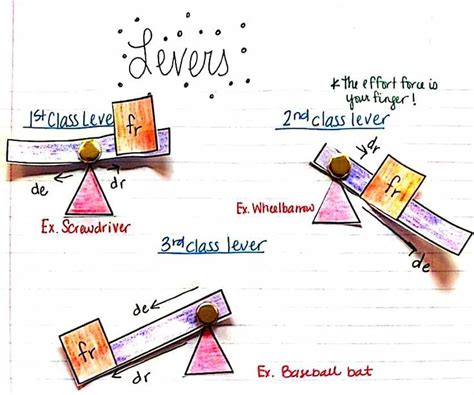 Levers
* the effort force is
your finger!
1st Class Leve
fr
de
dr
Ex. Screwdriver
2nd class lever
dr
fr
de
Ex. Wheelbarrow
3rd class lever
de
fr
dr
Ex. Baseball bat